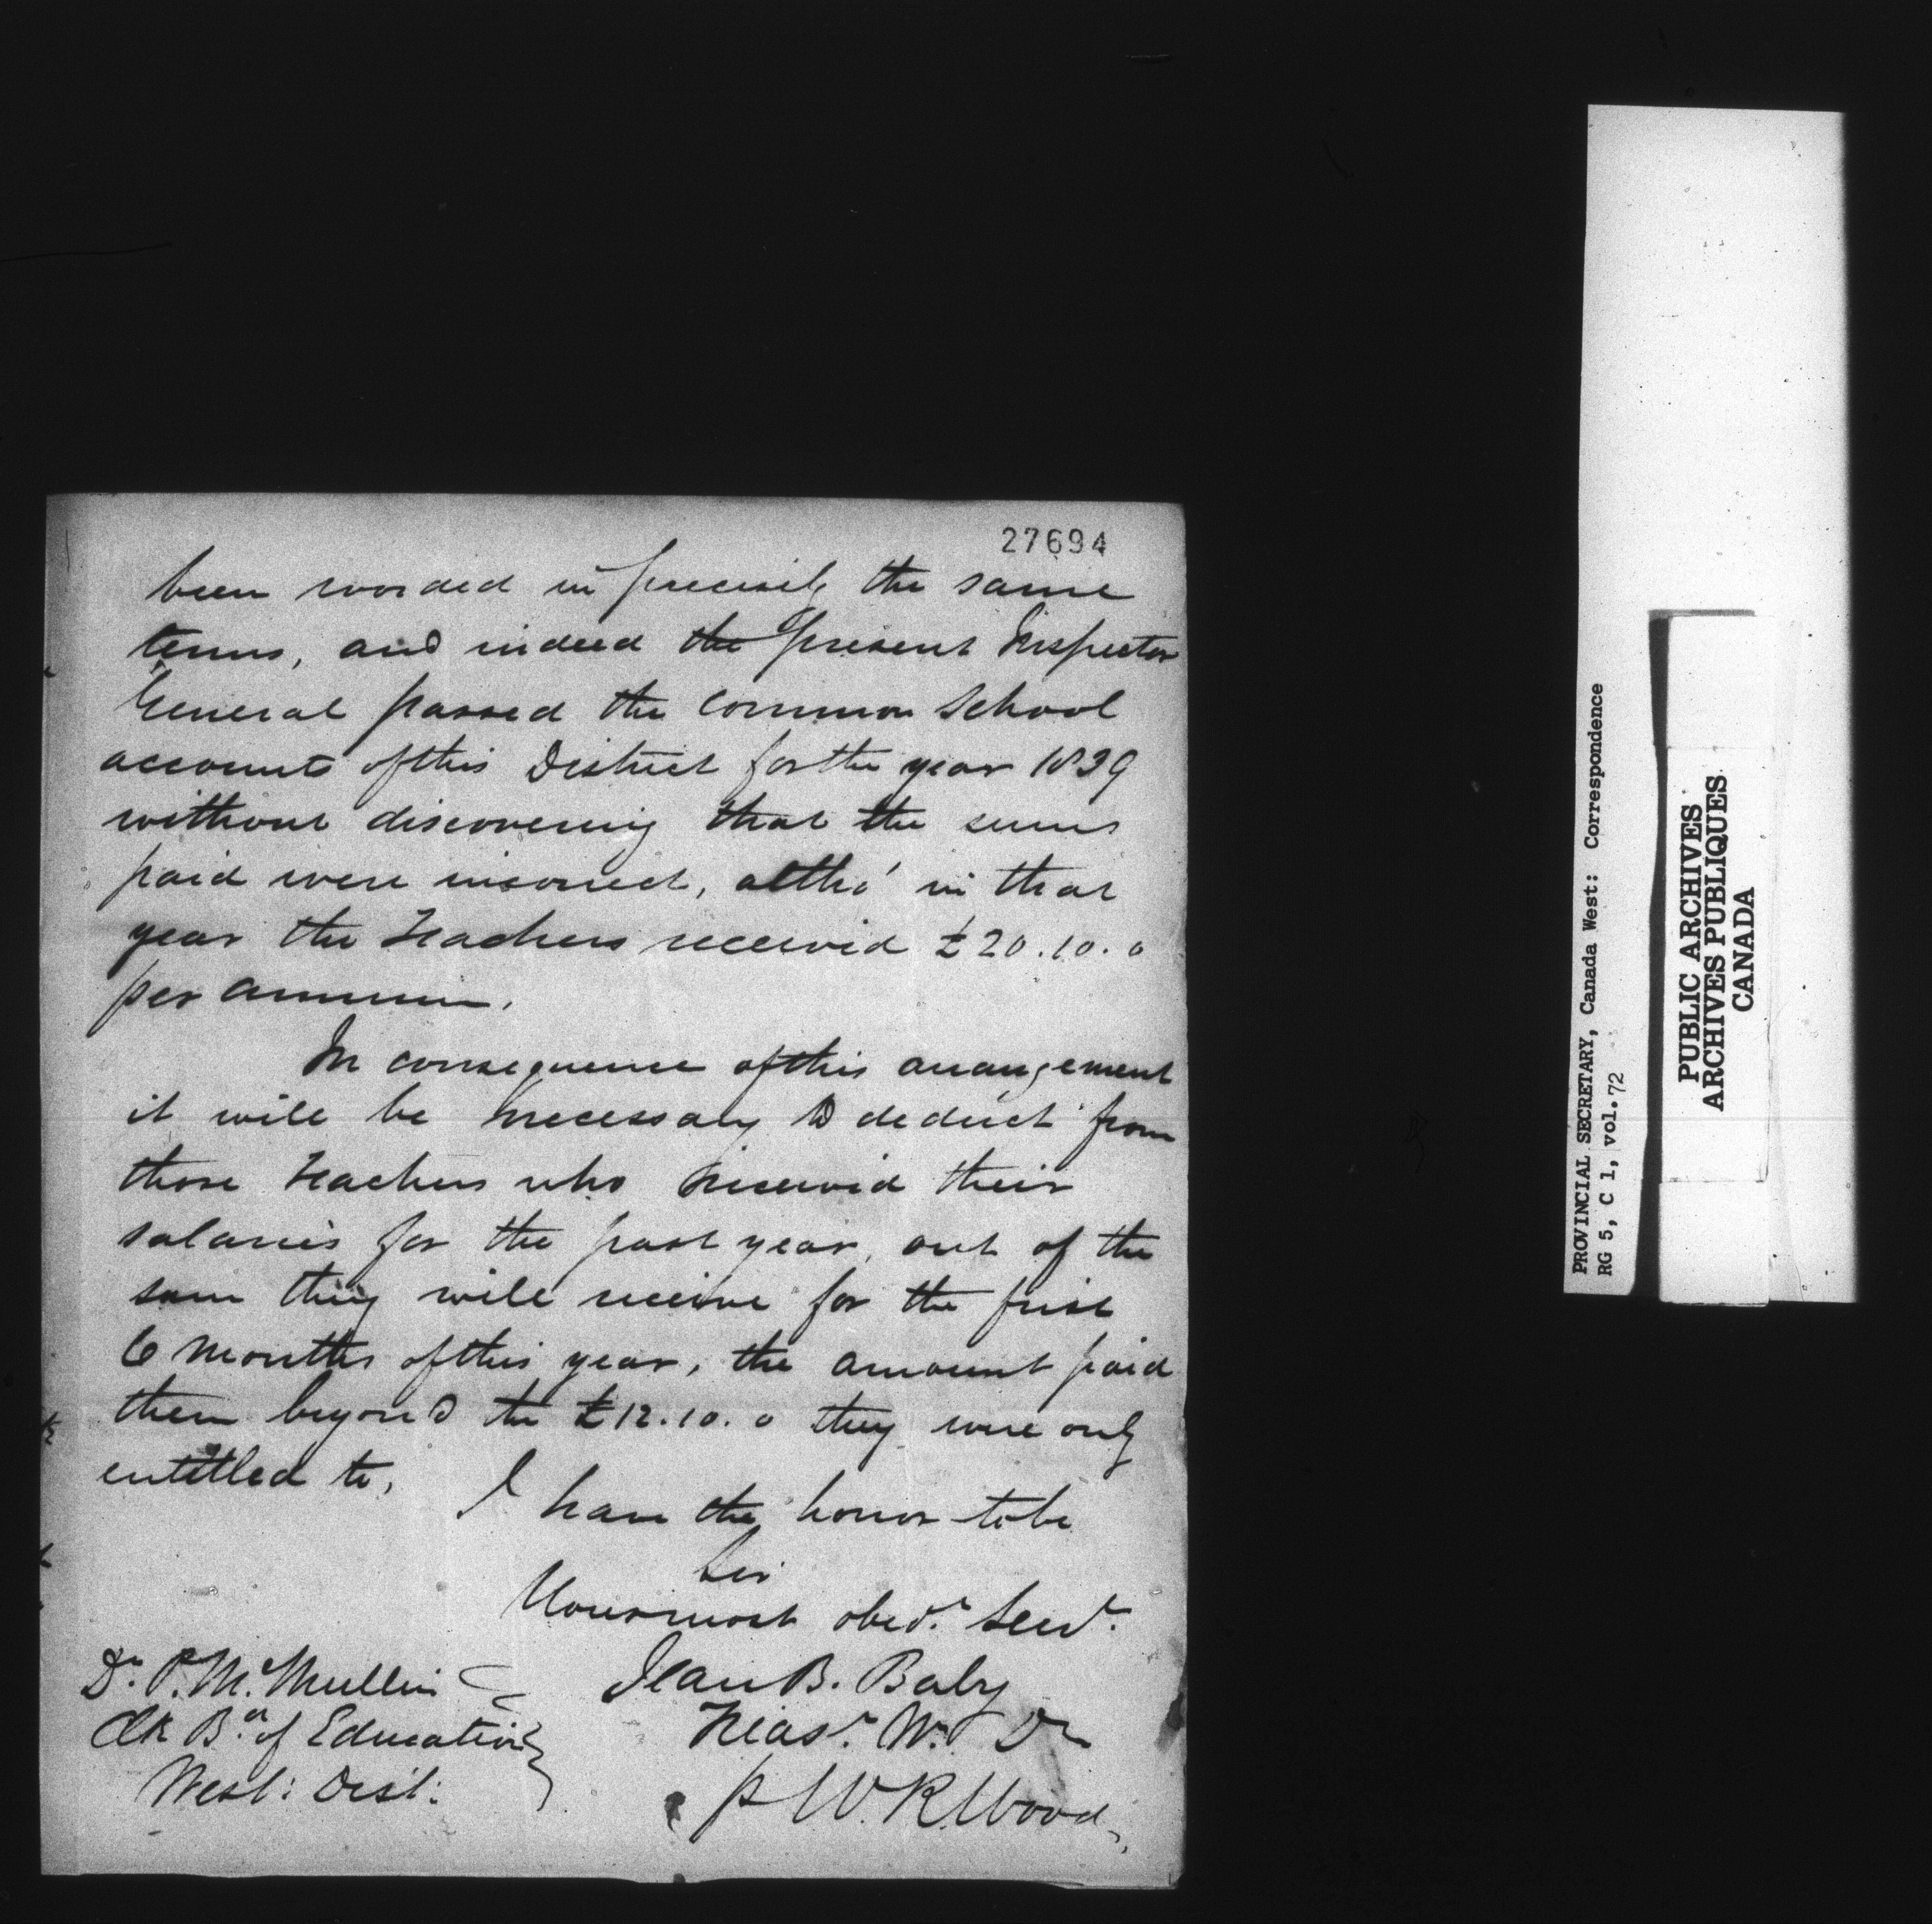 27694
been worded in precisely the same
terms, and indeed the present Inspector
General passed the common School
accounts of this District for the year 1839
without discovering that the sums
paid were incorrect, altho' in that
year the Teachers received £20.10.0
per annum.
In consequence of this arrangement
it will be necessary to deduct from
those Teachers who received their
salaries for the past year, out of the
sum they will receive for the first
6 Months of this year, the amount paid
them beyond the £12.10.0 they were only
entitled to,
I have the honor to be
Sir
Your most obedt. Servt.
Dr. P. McMullin
Clk Bd. of Education
West: Dist:
Jean B. Baby
Treasr. W. D
p W. R. Wood
PROVINCIAL SECRETARY, Canada West: Correspondence
RG 5, C 1, vol. 72
PUBLIC ARCHIVES
ARCHIVES PUBLIQUES
CANADA